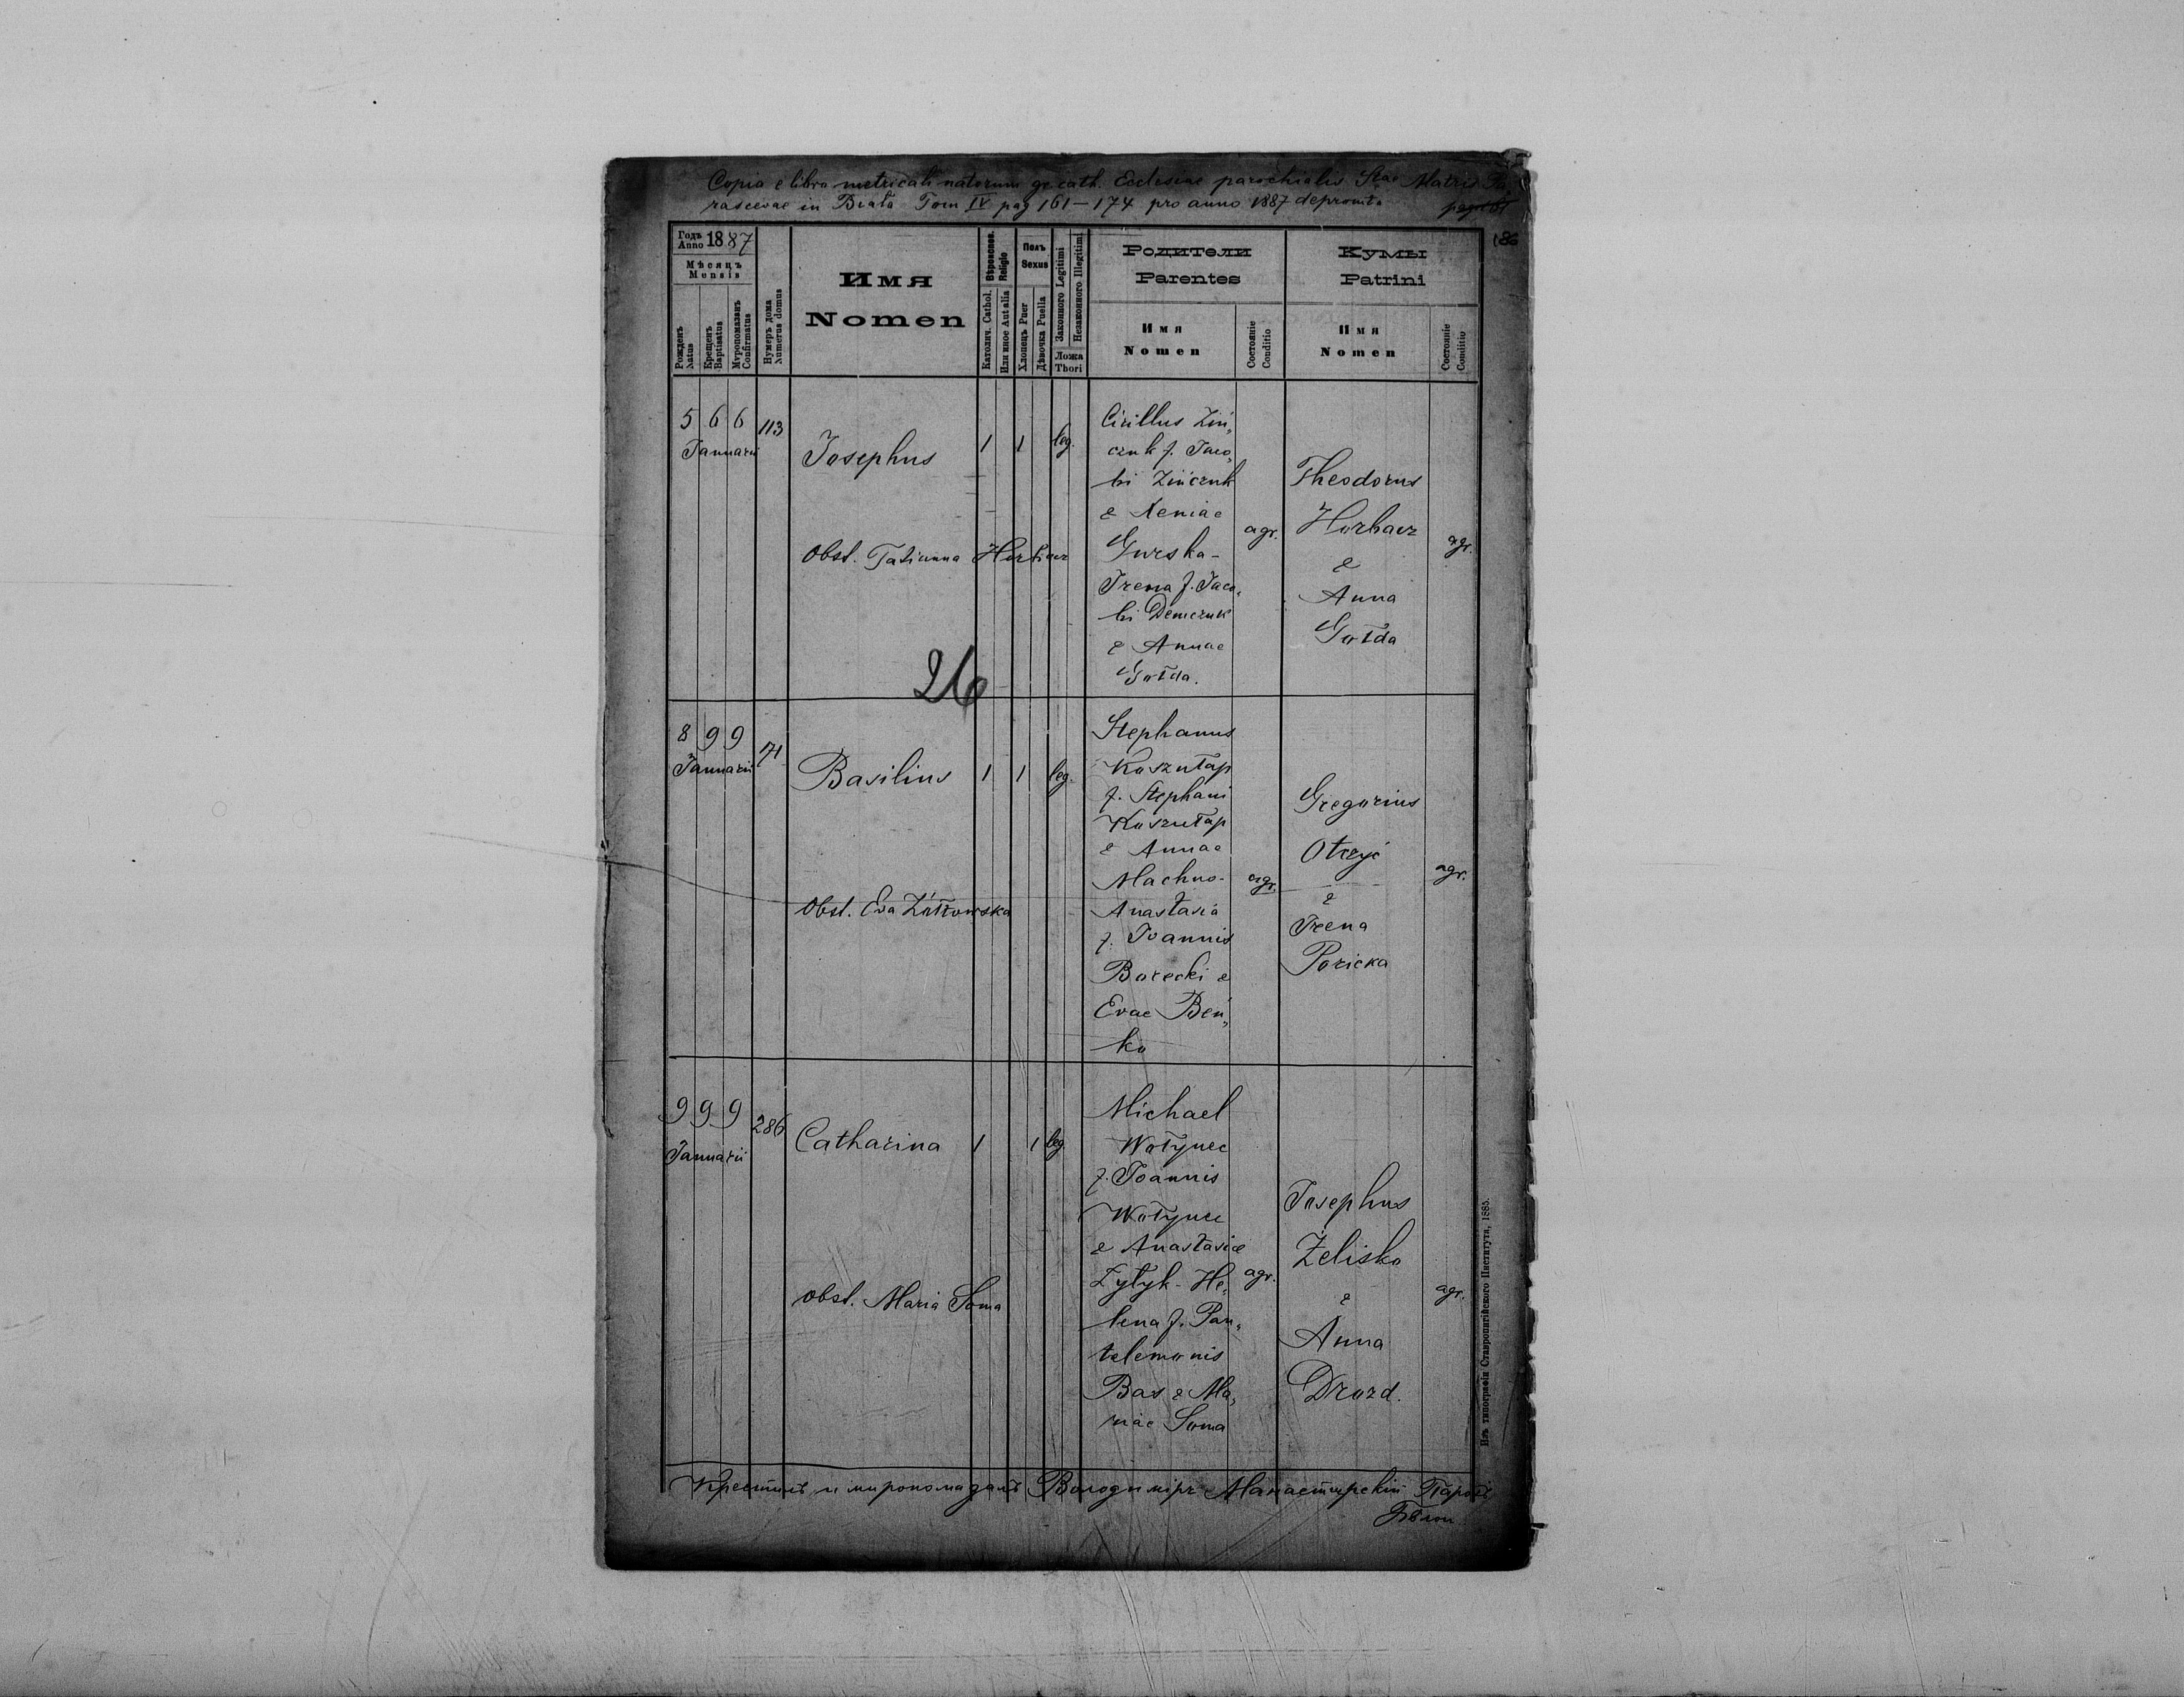 Copia e libro metricali natorum gr. cath. Ecclesiae parochialis Stae Matris Pa-
rascevae in Biała Tom IV pag 161–174 pro anno 1887 depromta
186
Годъ Anno 1887
Мѣсяцъ
Mensis
Рожденъ Natus
Крещенъ Baptisatus
Мѵропомазанъ Confirmatus
Нумеръ дома Numerus domus
Имя
Nomen
Вѣроиспов. Religio
Католич. Cathol.
Или иное Aut alia
Полъ
Sexus
Хлопецъ Puer
Дѣвочка Puella
Законного Legitimi
Незаконного Illegitimi
Ложа
Thori
Родители
Parentes
Имя
Nomen
Состояніе Conditio
Кумы
Patrini
Имя
Nomen
Состояніе Conditio
5 6 6
Januarii
113
Josephus
1 1 leg.
Obst. Tatianna Horbacz
Cirillus Zin„
czuk f. Jaco„
bi Zińczuk
e Xeniae
Gurska -
Irena f. Jaco„
bi Demczuk
e Annae
Gołda.
agr.
Theodorus
Horbacz
e
Anna
Gołda
agr.
26
8 9 9
Januarii
71
Basilius
1 1 leg.
Obst. Eva
Stephanus
Koszułap
f. Stephani
Koszułap
e Annae
Machno -
Anastasia
f. Joannis
Borecki e
Evae Beń„
ko
agr.
Gregorius
e
Irena
Poricka
agr.
9 9 9
Januarii
286
Catharina
1 1 leg
Obst. Maria Soma
Michael
Wołynec
f. Joannis
Wołynec
e Anastasiae
Zytyk - He„
lena f. Pan„
telemonis
Bas e Ma„
riae Soma
agr.
Josephus
Zelisko
e
Anna
Drozd.
agr.
Изъ типографіи Ставропигійского Института, 1885.
Крестилъ и миропомазалъ Володиміръ Манастирскій Парохъ